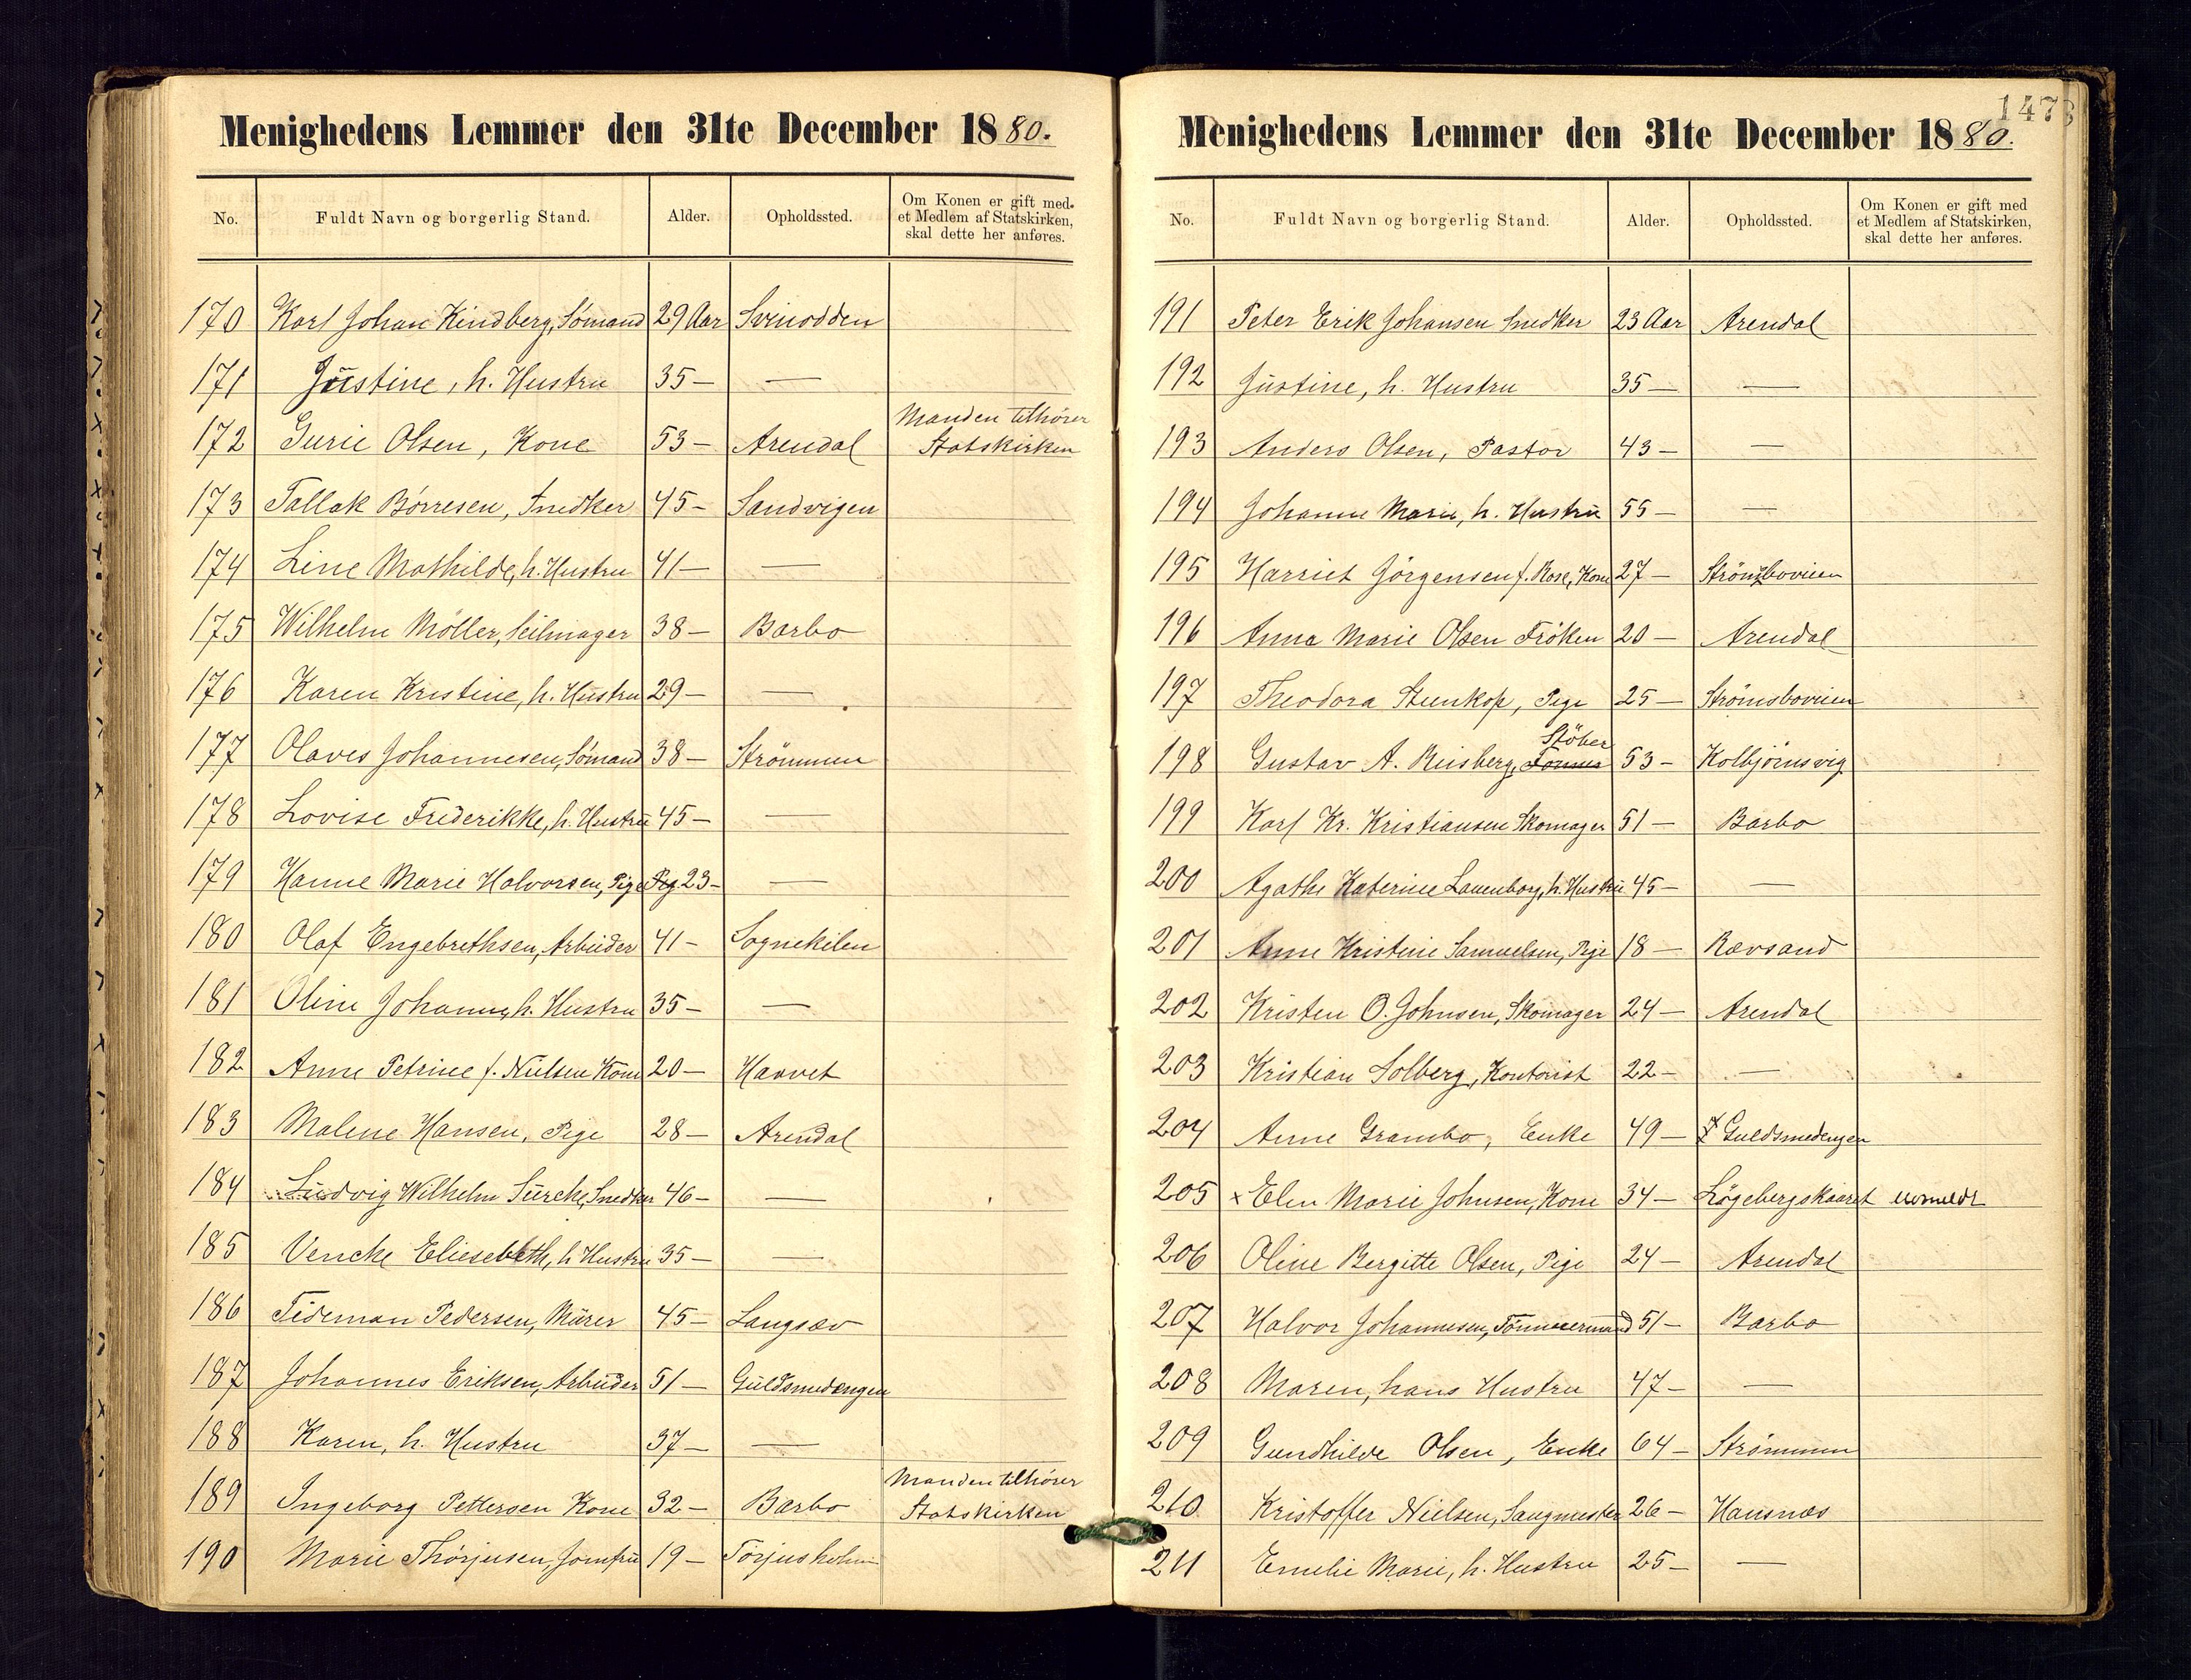 Menighedens Lemmer den 31te December 1880.
No. Fuldt Navn og borgerlig Stand. Alder. Opholdssted. Om Konen er gift med et Medlem af Statskirken, skal dette her anføres.
170 Karl Johan Kindberg, Sømand 29 Aar Svinodden
171 Justine, h. Hustru 35 — —
172 Gurie Olsen, Kone 53 — Arendal Manden tilhører Statskirken
173 Tallak Børresen, Snedker 45 — Sandvigen
174 Line Mathilde, h. Hustru 41 — —
175 Wilhelm Möller, Seilmager 38 — Barbo
176 Karen Kristine, h. Hustru 29 — —
177 Olaves Johannesen, Sømand 38 — Strömmen
178 Lovise Frederikke, h. Hustru 45 — —
179 Hanne Marie Halvorsen, Pige Pig 23 — —
180 Olaf Engebrethsen, Arbeider 41 — Sognekilen
181 Oline Johanne, h. Hustru 35 — —
182 Anne Petrine f. Nielsen Kone 20 — Harvet
183 Malene Hansen, Pige 28 — Arendal
184 Ludvig Wilhelm Sürche, Snedker 46 — —
185 Vencke Eliesebeth, h Hustru 35 — —
186 Tideman Pedersen, Mürer 45 — Langsæv
187 Johannes Eriksen, Arbeider 51 — Guldsmedengen
188 Karen, h. Hustru 37 — —
189 Ingeborg Pettersen Kone 32 — Barbo Manden tilhører Statskirken
190 Marie Thorjusen, Jomfru 19 — Torjusholm
1473
Menighedens Lemmer den 31te December 1880.
No. Fuldt Navn og borgerlig Stand. Alder. Opholdssted. Om Konen er gift med et Medlem af Statskirken, skal dette her anføres.
191 Peter Erik Johansen Snedker 23 Aar Arendal
192 Justine, h. Hustru 35 — —
193 Anders Olsen, Pastor 43 — —
194 Johanne Marie, h. Hustru 55 — —
195 Harriet Jörgensen f. Rose, Kone 27 — Strömsboveien
196 Anna Marie Olsen Frøken 20 — Arendal
197 Theodora Steenkop, Pige 25 — Strömsboveien
198 Gustav A. Riisberg, Støber 53 — Kolbjörnsvig
199 Karl Kr. Kristiansen Skomager 51 — Barbo
200 Agathe Katerine Lauenborg, h. Hustru 45 — —
201 Anne Kristine Samuelsen, Pige 18 — Rævsand
202 Kristen O. Johnsen, Skomager 24 — Arendal
203 Kristian Solberg, Kontorist 22 — —
204 Anne Grambo, Enke 49 — Guldsmedengen
205 x Elen Marie Johnsen, Kone 34 — Lögebergskaaret
206 Oline Bergitte Olsen, Pige 24 — Arendal
207 Halvor Johannesen, Tømmermand 51 — Barbo
208 Maren, hans Hustru 47 — —
209 Gundhilde Olsen, Enke 64 — Strömmen
210 Kristoffer Nielsen, Saugmester 26 — Hansnæs
211 Emelie Marie, h. Hustru 25 — —